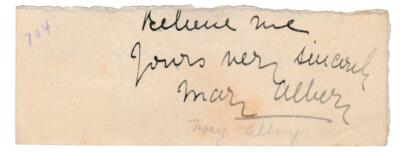 704
Believe me
Yours very sincerely
Mary Albery
Mary Albery